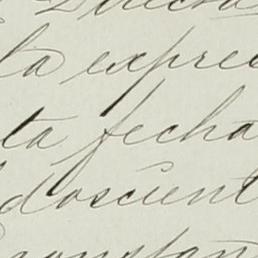 la expre
ta fecha
doscient